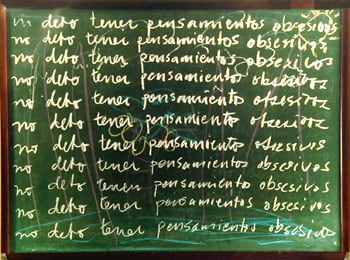 no debo tener pensamientos obsesivos
no debo tener pensamientos obsesivos
no debo tener pensamientos obsesivos
no debo tener pensamiento obsesivos
no debo tener pensamientos obsesivos
no debo tener pensamiento obsesivos
no debo tener pensamientos obsesivos
no debo tener pensamientos obsesivos
no debo tener pensamientos obsesivos
no debo tener pensamientos obsesivos
no debo tener pensamientos obsesivos